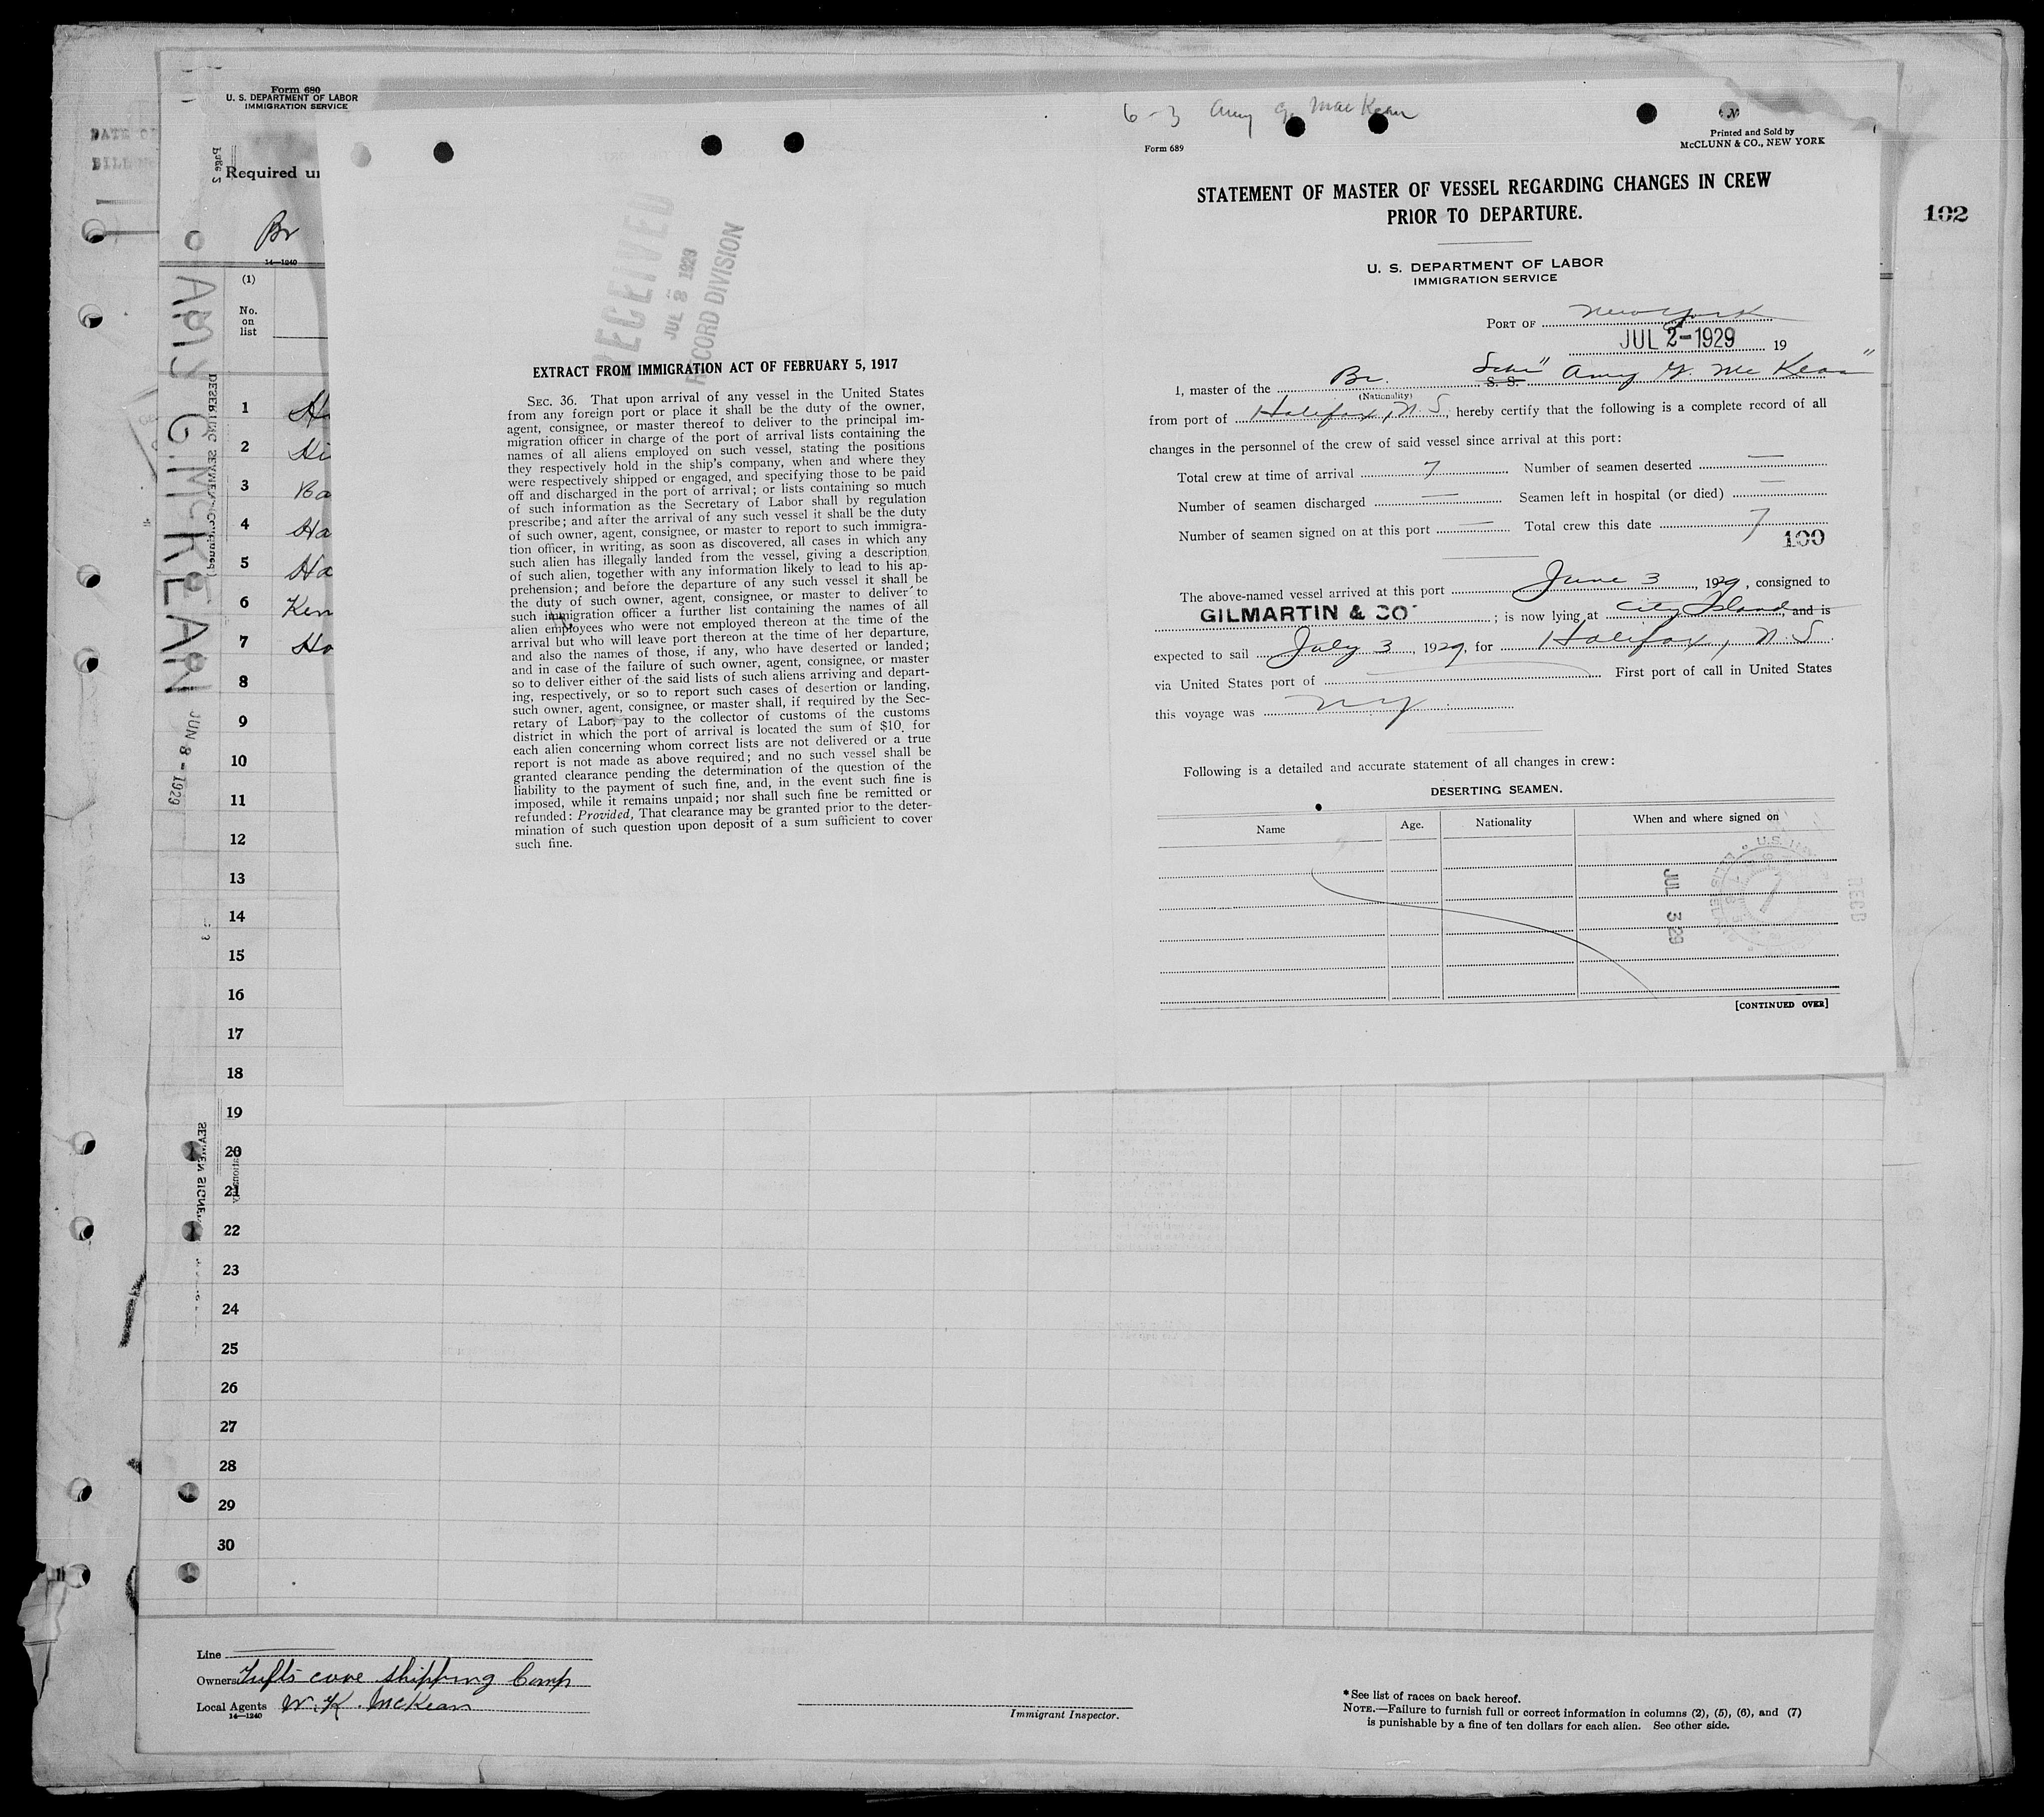 Form 680
U. S. DEPARTMENT OF LABOR
IMMIGRATION SERVICE
Required un
Br
14—1240
(1)
No.
on
list
AMY G. McKEAN
JUN 8 - 1929
1
2 Hi
3 Ba
4 Ha
5 Ha
6 Ken
7 Ho
8
9
10
11
12
13
14
15
16
17
18
19
20
21
22
23
24
25
26
27
28
29
30
Line
Owners Tufts cove shipping Comp
Local Agents W. K. McKean
14—1240
Immigrant Inspector.
* See list of races on back hereof.
NOTE.—Failure to furnish full or correct information in columns (2), (5), (6), and (7)
is punishable by a fine of ten dollars for each alien. See other side.
RECEIVED
JUL 8 1929
RECORD DIVISION
EXTRACT FROM IMMIGRATION ACT OF FEBRUARY 5, 1917
SEC. 36. That upon arrival of any vessel in the United States
from any foreign port or place it shall be the duty of the owner,
agent, consignee, or master thereof to deliver to the principal im-
migration officer in charge of the port of arrival lists containing the
names of all aliens employed on such vessel, stating the positions
they respectively hold in the ship's company, when and where they
were respectively shipped or engaged, and specifying those to be paid
off and discharged in the port of arrival; or lists containing so much
of such information as the Secretary of Labor shall by regulation
prescribe; and after the arrival of any such vessel it shall be the duty
of such owner, agent, consignee, or master to report to such immigra-
tion officer, in writing, as soon as discovered, all cases in which any
such alien has illegally landed from the vessel, giving a description
of such alien, together with any information likely to lead to his ap-
prehension; and before the departure of any such vessel it shall be
the duty of such owner, agent, consignee, or master to deliver to
such immigration officer a further list containing the names of all
alien employees who were not employed thereon at the time of the
arrival but who will leave port thereon at the time of her departure,
and also the names of those, if any, who have deserted or landed;
and in case of the failure of such owner, agent, consignee, or master
so to deliver either of the said lists of such aliens arriving and depart-
ing, respectively, or so to report such cases of desertion or landing,
such owner, agent, consignee, or master shall, if required by the Sec-
retary of Labor, pay to the collector of customs of the customs
district in which the port of arrival is located the sum of $10 for
each alien concerning whom correct lists are not delivered or a true
report is not made as above required; and no such vessel shall be
granted clearance pending the determination of the question of the
liability to the payment of such fine, and, in the event such fine is
imposed, while it remains unpaid; nor shall such fine be remitted or
refunded: Provided, That clearance may be granted prior to the deter-
mination of such question upon deposit of a sum sufficient to cover
such fine.
6-3 Amy G. MacKean
Form 689
Printed and Sold by
McCLUNN & CO., NEW YORK
102
STATEMENT OF MASTER OF VESSEL REGARDING CHANGES IN CREW
PRIOR TO DEPARTURE.
U. S. DEPARTMENT OF LABOR
IMMIGRATION SERVICE
PORT OF New York
JUL 2-1929 19
I, master of the Br. S. S. Schr "Amy G. McKean"
(Nationality)
from port of Halifax, N. S., hereby certify that the following is a complete record of all
changes in the personnel of the crew of said vessel since arrival at this port:
Total crew at time of arrival 7 Number of seamen deserted —
Number of seamen discharged — Seamen left in hospital (or died) —
Number of seamen signed on at this port — Total crew this date 7
100
The above-named vessel arrived at this port June 3, 1929, consigned to
GILMARTIN & CO. ; is now lying at City Island, and is
expected to sail July 3, 1929, for Halifax, N. S.
via United States port of — First port of call in United States
this voyage was NY
Following is a detailed and accurate statement of all changes in crew:
DESERTING SEAMEN.
Name Age. Nationality When and where signed on
JUL 3 29
RECD
[CONTINUED OVER]